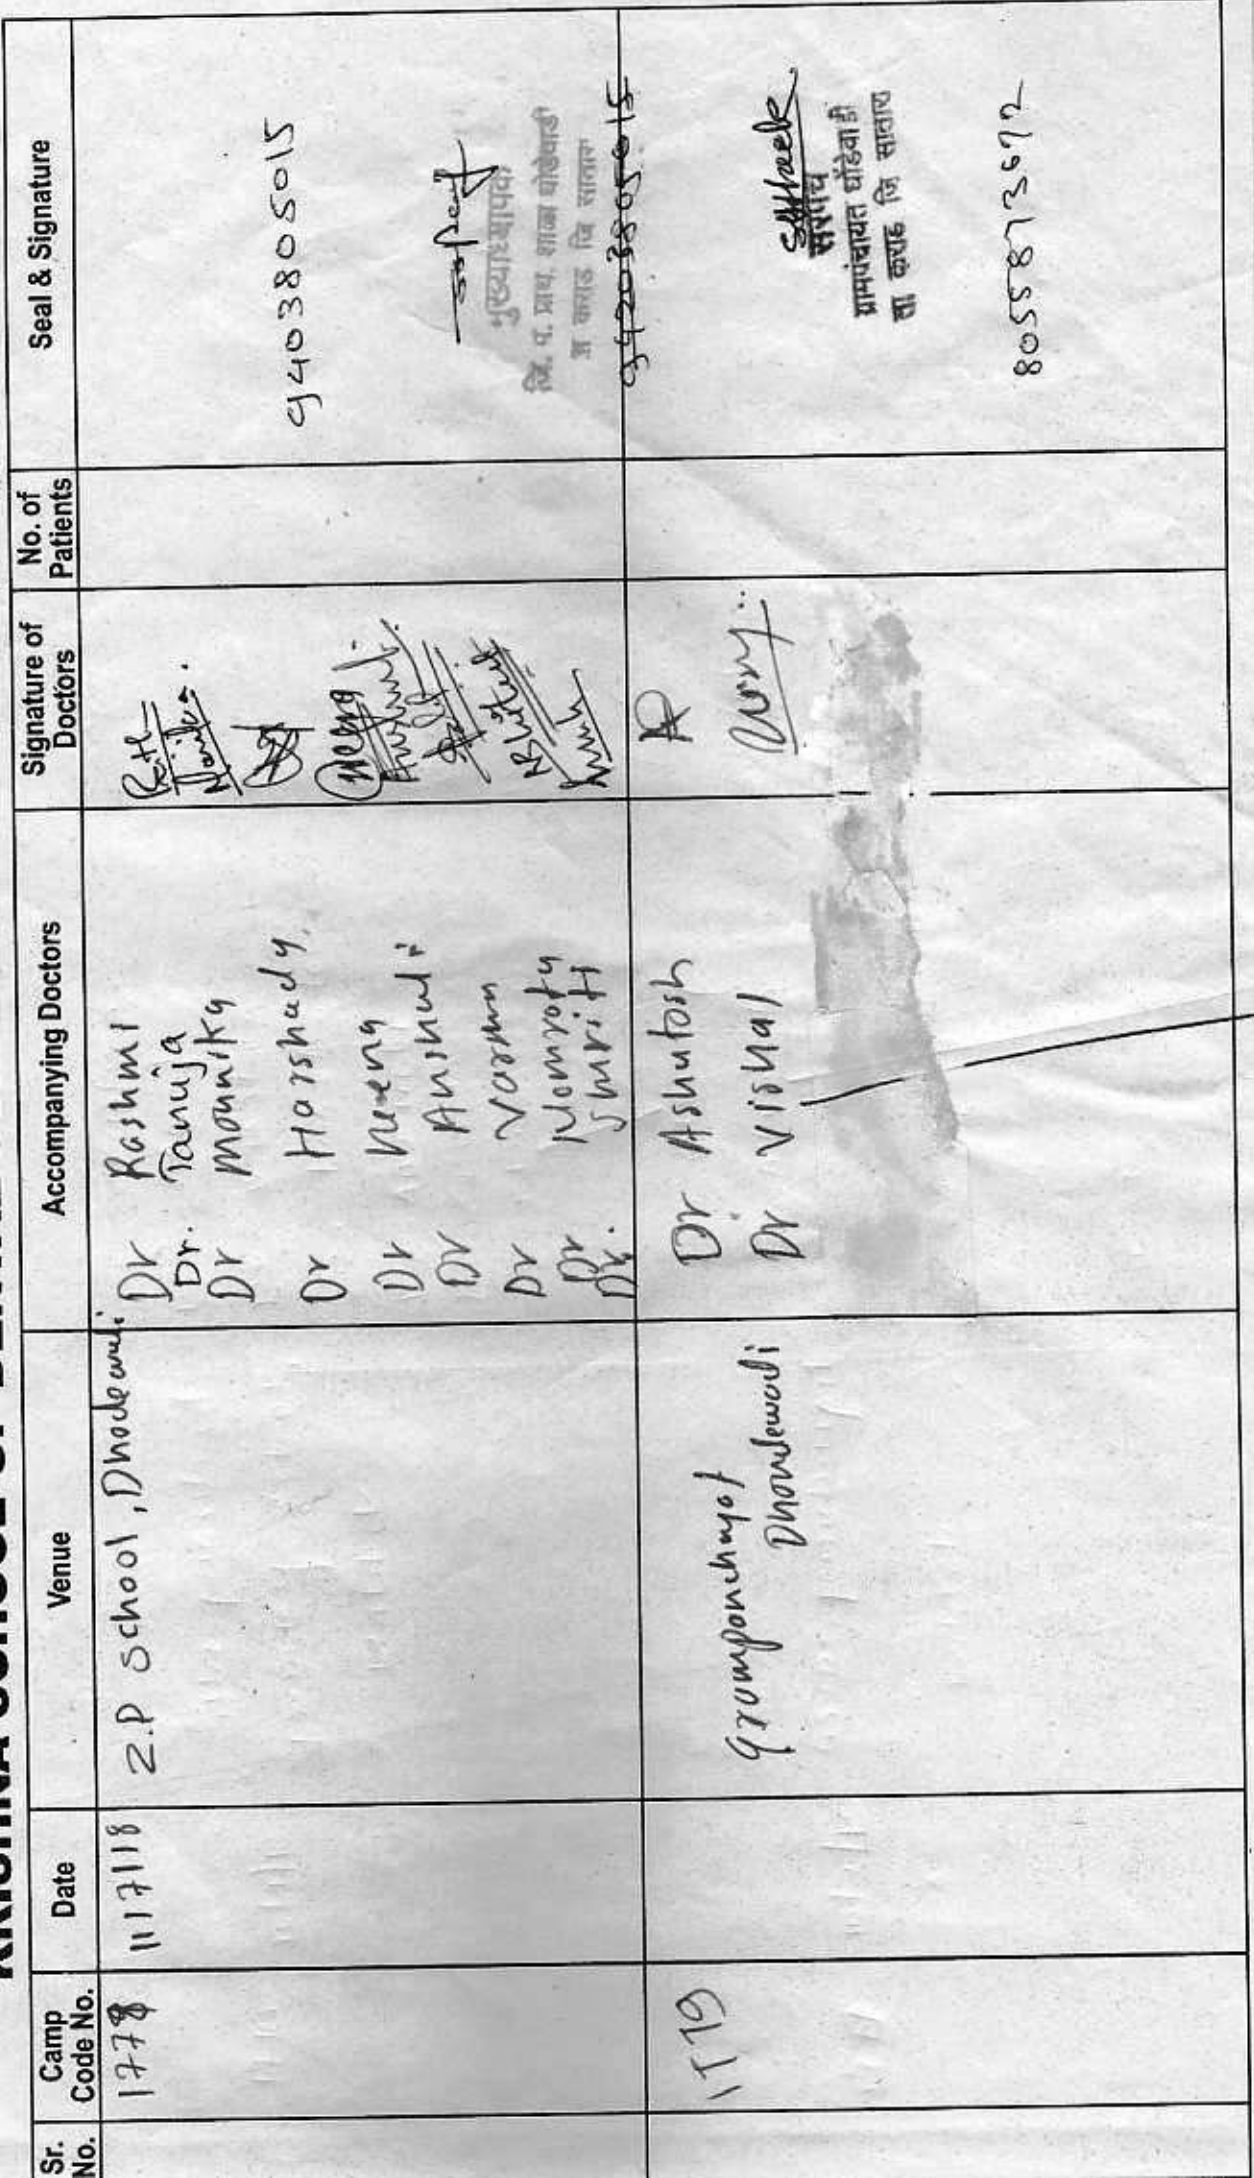 KRISHNA SCHOOL OF
Sr. No.
Camp Code No.
Date
Venue
Accompanying Doctors
Signature of Doctors
No. of Patients
Seal & Signature
1778
11/7/18
Z.P School, Dhodewadi
Dr Rashmi
Dr. Tanuja
Dr Monika
Dr Harshady
Dr
Dr Anshuli
Dr Varsha
Dr Namrata
Dr. Smriti
9403805015
मुख्याध्यापक
जि. प. प्राथ. शाळा धोंडेवाडी
कराड जि सातारा
94203805015
1779
Grampanchayat
Dhondewadi
Dr Ashutosh
Dr Vishal
सरपंच
ग्रामपंचायत धोंडेवाडी
ता कराड जि सातारा
8055873672